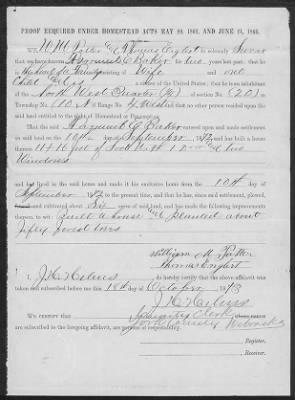 PROOF REQUIRED UNDER HOMESTEAD ACTS MAY 20, 1862, AND JUNE 21, 1866.
We, W M Potter & Thomas Englert do solemnly Swear
that we have known G Baker for two years last past; that
he is the head of a family consisting of Wife and one
Child
a citizen of the United States; that he is an inhabitant
of the North West Quarter of section No. (20) in
Township No. 10 N of Range No. 4 West and that no other person resided upon the said land
entitled to the right of Homestead or Pre-emption.
That the said G Baker entered upon and made settlement
on said land on the 10th day of September 1872 and has built a house
thereon 11 + 16 feet 1 Door two
Windows
and has lived in the said house and made it his exclusive home from the 10th day of
September 1872 to the present time, and that he has, since said settlement, plowed,
fenced, and cultivated about Six acres of said land, and has made the following improvements
thereon, to wit: Built a house and planted about
Fifty forest trees
William M Potter
Thomas Englert
I, J. H. Helmes do hereby certify that the above affidavit was
taken and subscribed before me this 18th day of October 1873
J. H. Helmes
County Clerk
WE CERTIFY that
York County Nebraska
are subscribed to the foregoing affidavit, are persons of respectability.
Register.
Receiver.